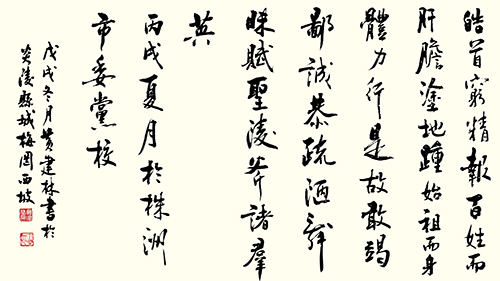 皓首窮精報百姓而
肝膽塗地踵始祖而身
體力行是故敢竭
鄙誠恭疏酒辭
昧賦聖陵斧諸群
英
丙戌夏月於株洲
市委黨校
戊戌冬月黄建林書於
炎陵縣城梅岡西坡